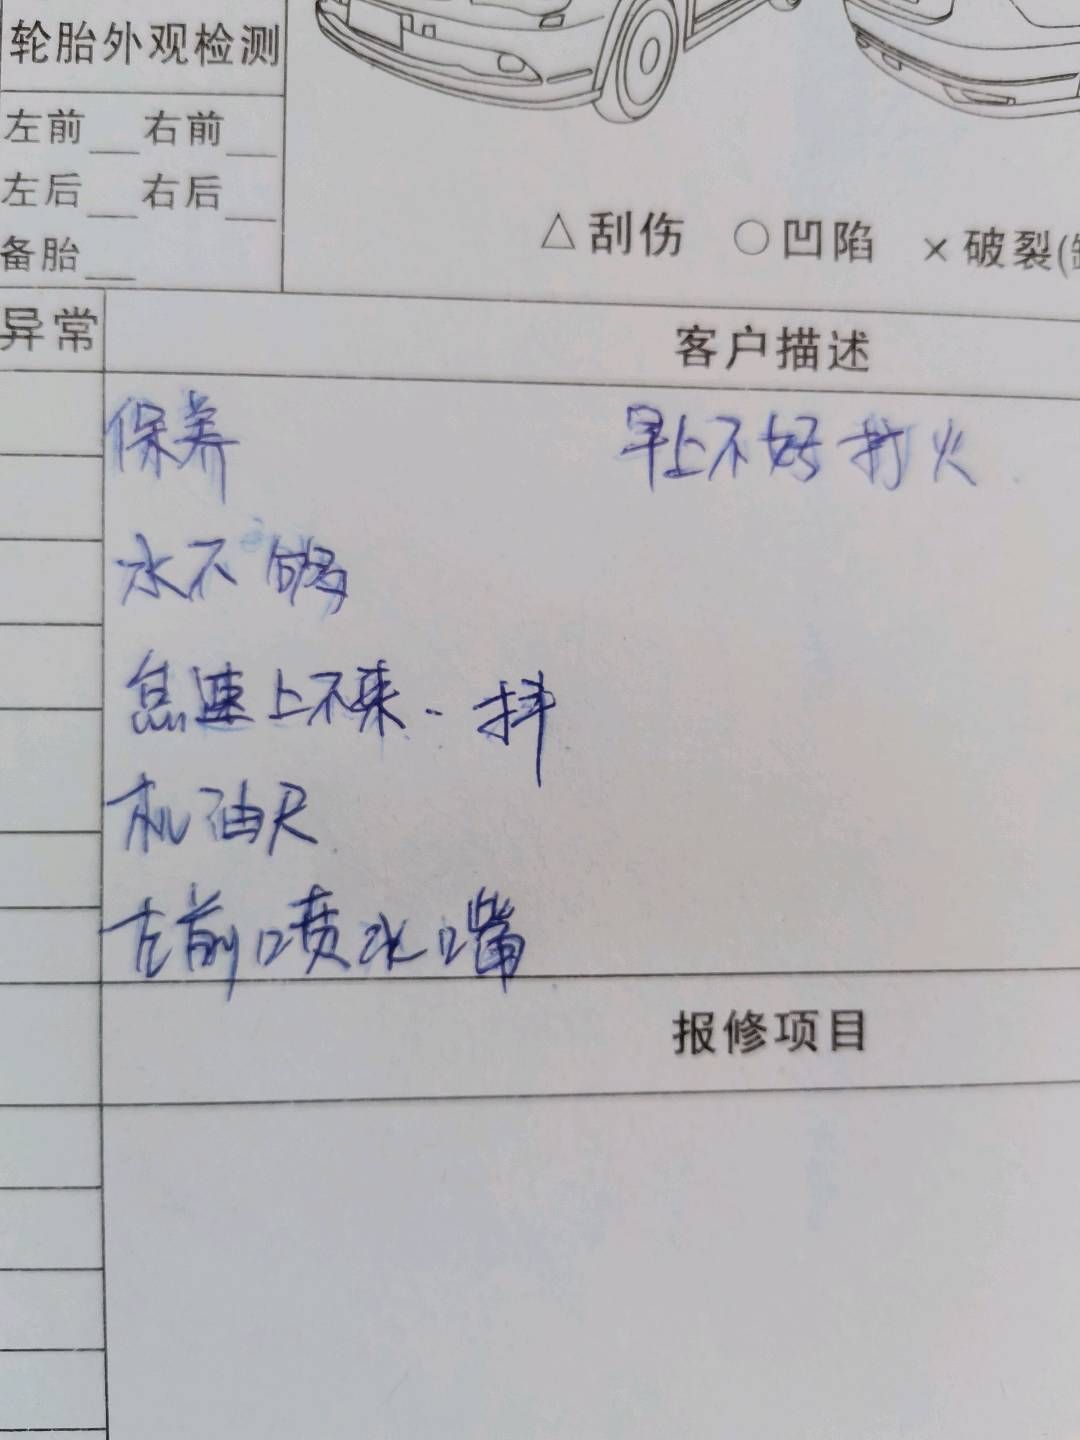 轮胎外观检测
左前__右前__
左后__右后__
备胎__
△刮伤 ○凹陷 ×破裂(
异常 客户描述
保养 早上不好打火
水不够
怠速上不来..抖
机油尺
左前喷水嘴
报修项目